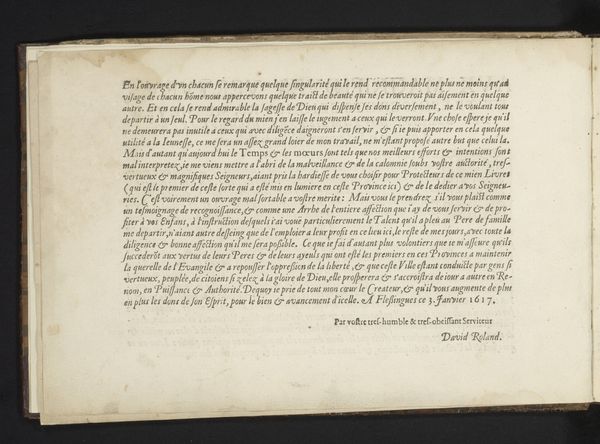 En l'ouvrage d'vn chacun se remarque quelque singularité qui le rend recommandable ne plus ne moins qu'au
visage de chacun hõme nous appercevons quelque traict de beauté qui ne se trouveroit pas aisement en quelque
autre. Et en cela se rend admirable la sagesse de Dieu qui dispense ses dons diversement, ne le voulant tout
departir à un seul. Pour le regard du mien j'en laisse le iugement a ceux qui le verront. Vne chose espere je qu'il
ne demeurera pas inutile a ceux qui avec diligẽce daigneront s'en servir, & si ie puis apporter en cela quelque
utilité a la Ieunesse, ce me sera un assez grand loier de mon travail, ne m'estant proposé autre but que celui la.
Mais d'autant qu'aujourd'hui le Temps & les mœurs sont tels que nos meilleurs efforts & intentions sont
mal interpretez je me viens mettre a l'abri de la malveillance & de la calomnie soubs vostre auctorité, tres-
vertueux & magnifiques Seigneurs, aiant pris la hardiesse de vous choisir pour Protecteurs de ce mien Livret
(qui est le premier de ceste sorte qui a esté mis en lumiere en ceste Province ici) & de le dedier a vos Seigneu-
ries. C'est voirement un ouvrage mal sortable a vostre merite: Mais vous le prendrez s'il vous plaist comme
un tesmoignage de recognoissance, & comme une Arrhe de l'entiere affection que i'ay de vous servir & de pro-
fiter à vos Enfans, à l'instruction desquels i'ai voué particulierement le Talent qu'il a pleu au Pere de famille
me departir, n'aiant autre desseing que de l'emploier a leur profit en ce lieu ici, le reste de mes jours, avec toute la
diligence & bonne affection qu'il me sera possible. Ce que ie fai d'autant plus volontiers que ie m'asseure qu'ils
succederõt aux vertus de leurs Peres & de leurs ayeuls qui ont esté les premiers en ces Provinces a maintenir
la querelle de l'Evangile & a repousser l'oppression de la liberté, & que ceste Ville estant conduicte par gens si
vertueux, peuplée, de citoiens si zelez à la gloire de Dieu, elle prosperera & s'accroistra de iour a autre en Re-
nom, en Puissance & Authorité. Dequoy ie prie de tout mon cœur le Createur, & qu'il vous augmente de plus
en plus les dons de son Esprit, pour le bien & avancement d'icelle. A Flessingues ce 3. Janvier 1617.
Par vostre tres-humble & tres-obeissant Serviteur
David Roland.